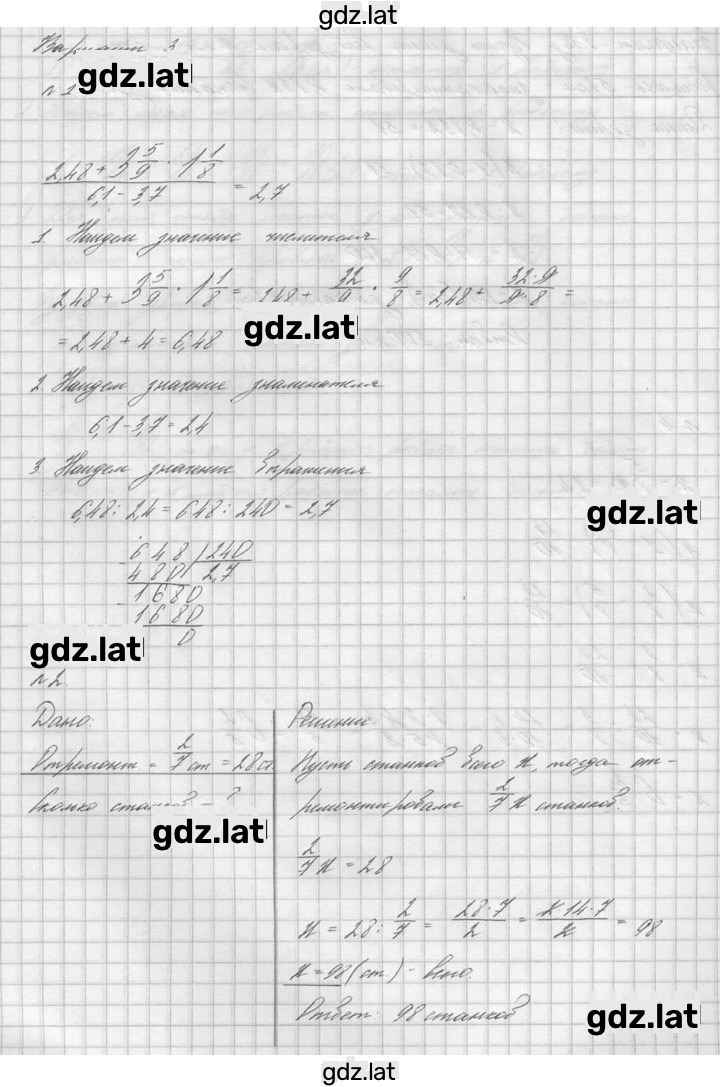 gdz.lat
Вариант 3
gdz.lat
№1
(2,48 + 3 5/9 · 1 1/8) / (6,1 − 3,7) = 2,7
1. Найдем значение числителя
2,48 + 3 5/9 · 1 1/8 = 2,48 + 32/9 · 9/8 = 2,48 + (32·9)/(9·8) =
= 2,48 + 4 = 6,48
gdz.lat
2. Найдем значение знаменателя
6,1 − 3,7 = 2,4
3. Найдем значение
6,48 : 2,4 = 648 : 240 = 2,7
gdz.lat
648 | 240
480 | 2,7
1680
1680
0
gdz.lat
№2.
Дано:
Отремонт = 2/7 ст = 28 ст.
Сколько станков − ?
gdz.lat
Решение:
Пусть станков всего x, тогда от-
ремонтировали 2/7 x станков.
2/7 x = 28
x = 28 : 2/7 = (28·7)/2 = (2·14·7)/2 = 98
x = 98 (ст.) − всего.
Ответ: 98 станков
gdz.lat
gdz.lat